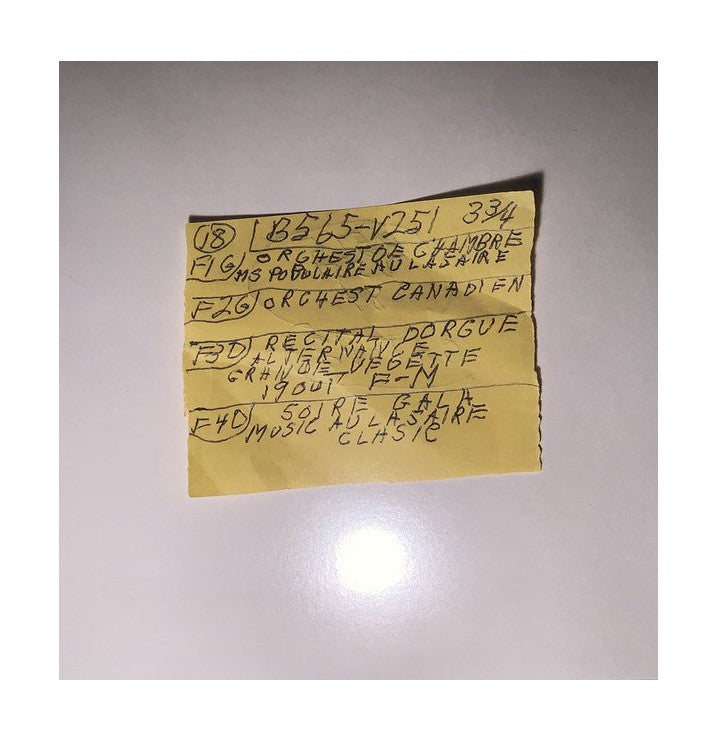 18 B565-V251 3 3/4
F1G ORCHESTDE CHAMBRE
MS POPULAIRE AU LASAIRE
F2G ORCHEST CANADIEN
F3D RECITAL DORGUE
GRANDE VEGETTE
19 OUT F-M
F4D SOIRE GALA
MUSIC AU LASAIRE
CLASIC